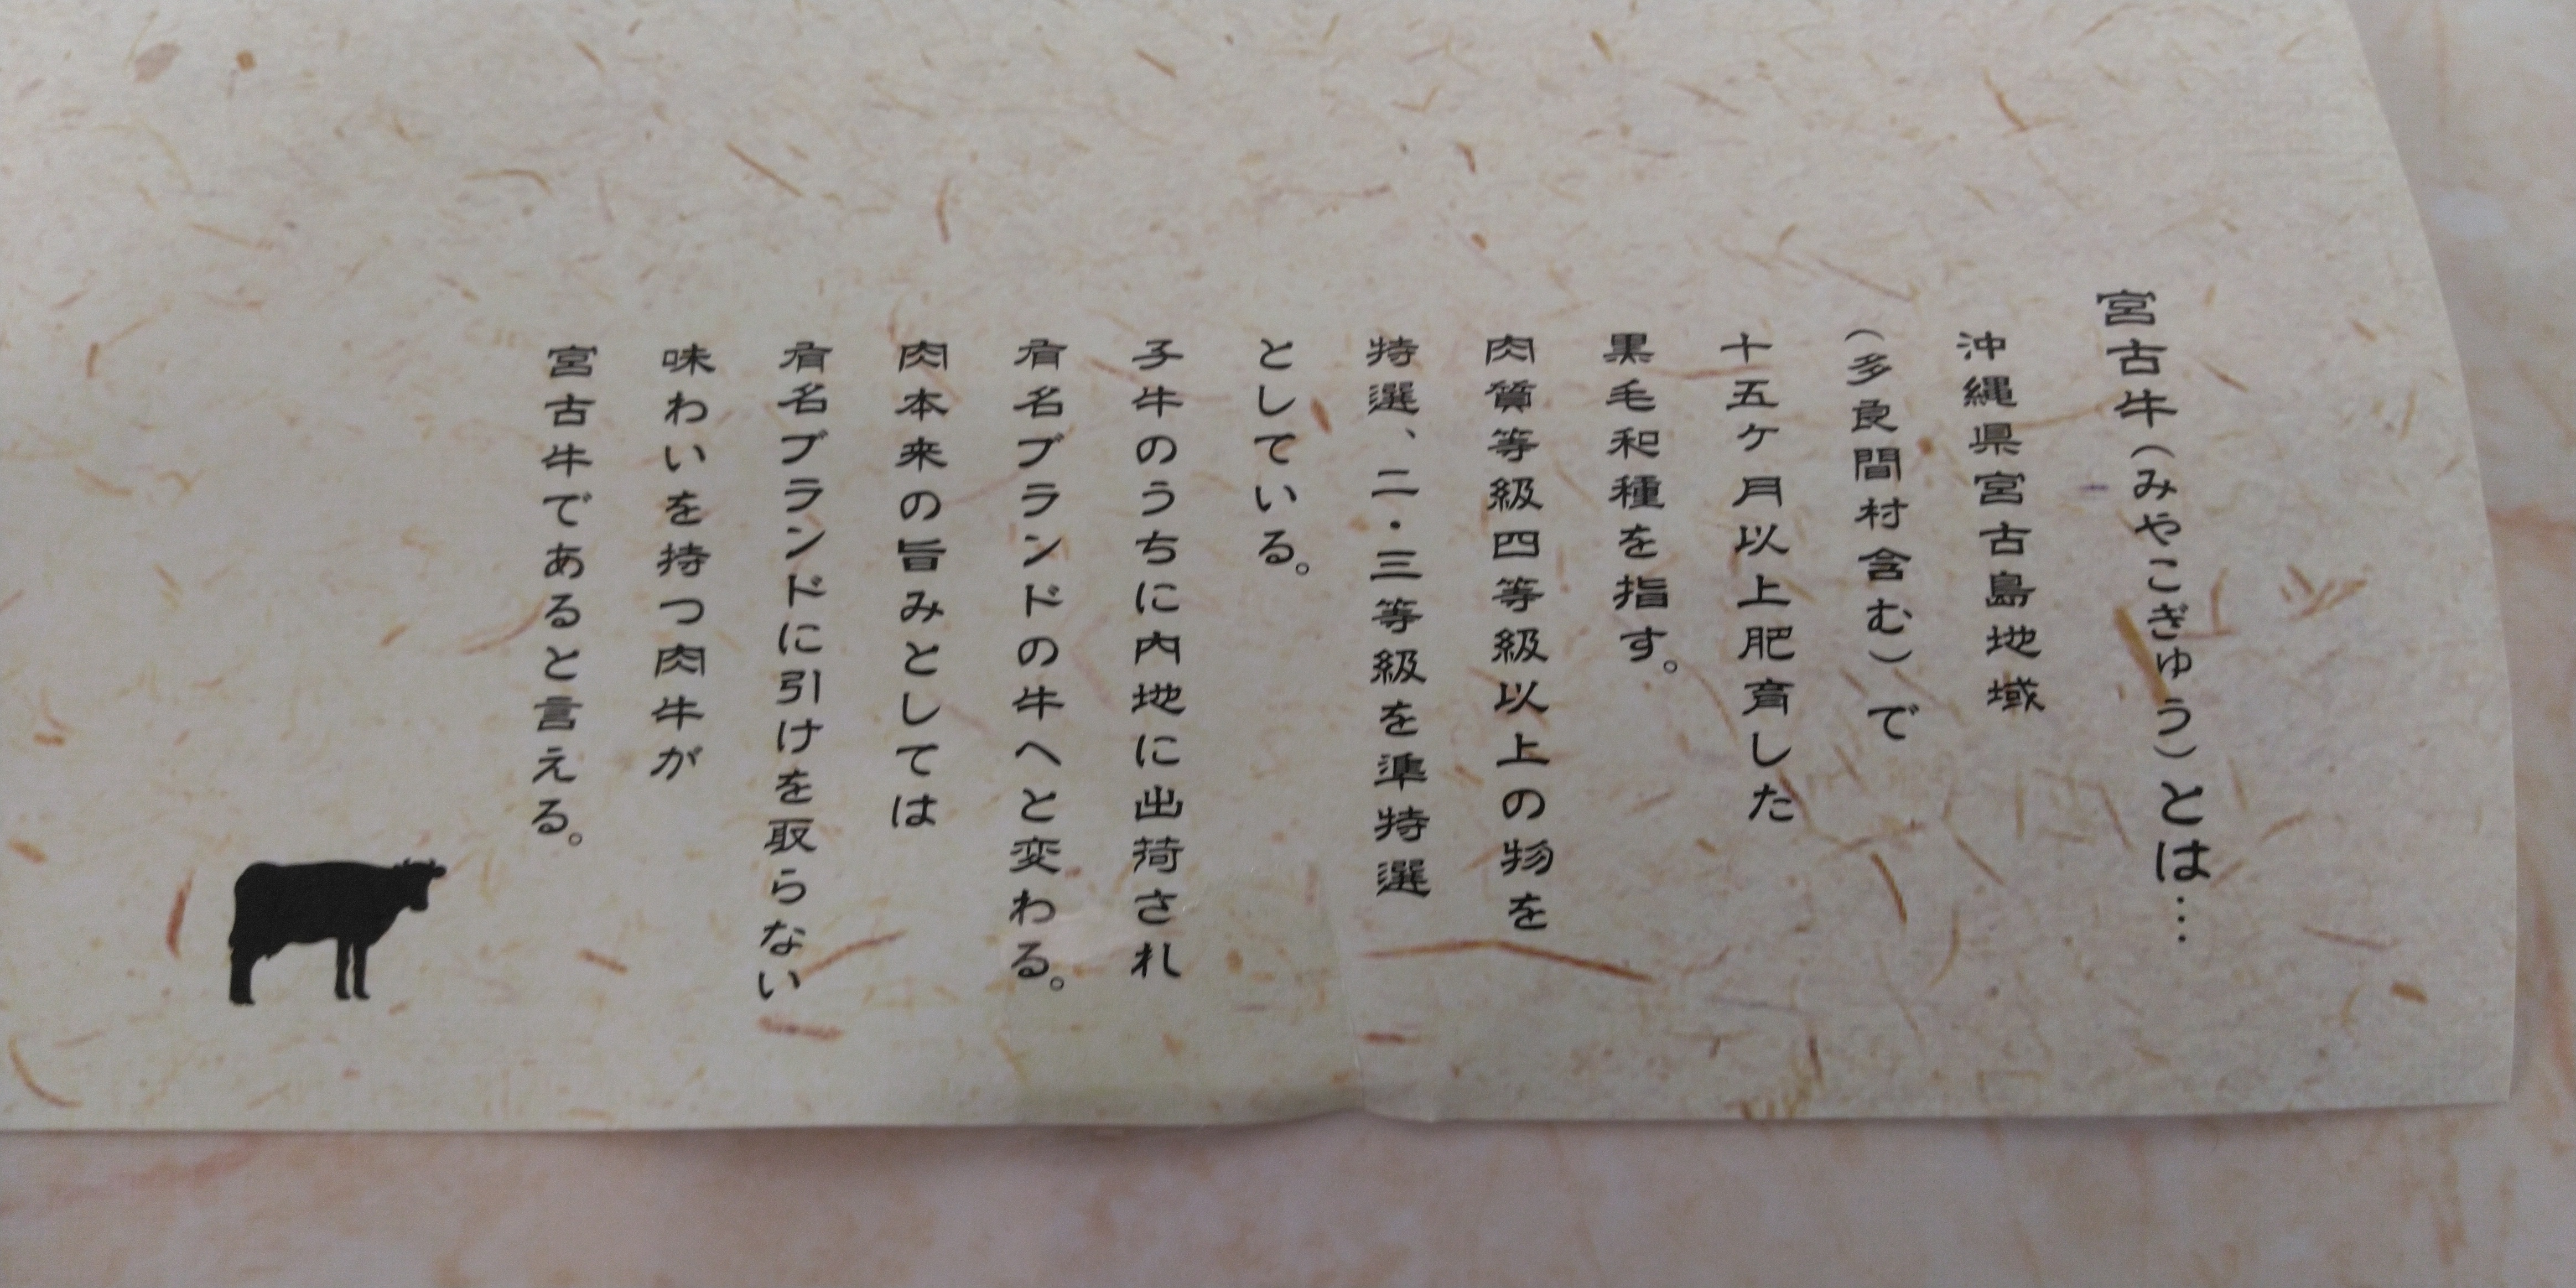 宮古牛(みやこぎゅう)とは…
沖縄県宮古島地域
(多良間村含む)で
十五ケ月以上肥育した
黒毛和種を指す。
肉質等級四等級以上の物を
特選、二・三等級を準特選
としている。
子牛のうちに内地に出荷され
有名ブランドの牛へと変わる。
肉本来の旨みとしては
有名ブランドに引けを取らない
味わいを持つ肉牛が
宮古牛であると言える。